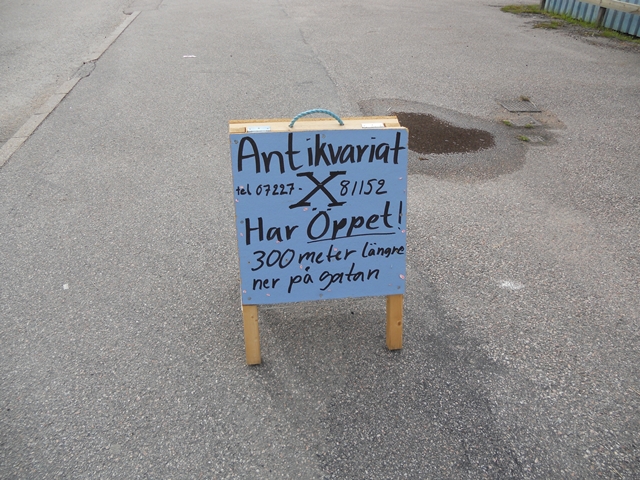 Antikvariat
tel 07227- X 81152
Har Öppet!
300 meter längre
ner på gatan